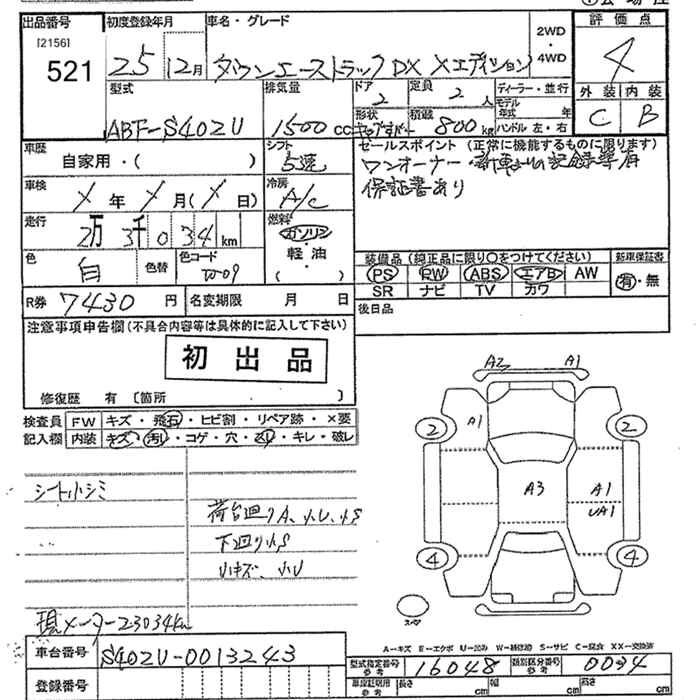 出品番号 初度登録年月 車名・グレード 2WD・4WD 評価点
[2156] 521 25 12月 タウンエーストラックDX Xエディション 4
型式 排気量 ドア 定員 ディーラー・並行 外装 内装
ABF-S402U 1500cc 2 2人 モデル年式 年 C B
形状 積載 800kg ハンドル 左・右
車歴 自家用・( ) シフト 5速 セールスポイント (正常に機能するものに限ります)
ワンオーナー・
保証書あり
車検 X年X月(X日) 冷房 A/C
走行 2万3千034km 燃料 ガソリン・軽油・( )
色 白 色替 色コード W-09
装備品 (純正品に限り○をつけてください) 新車保証書
PS RW ABS エアB AW 有・無
SR ナビ TV カワ
R券 7430円 名変期限 月 日 後日品
注意事項申告欄 (不具合内容等は具体的に記入して下さい)
初出品
修復歴 有 [箇所 ]
検査員 FW キズ・飛石・ヒビ割・リペア跡・×要
記入欄 内装 キズ・汚れ・コゲ・穴・スレ・キレ・破レ
シート小シミ
荷台廻りA、小U、小S
下廻り小S
小キズ、小U
現メーター23034km
A2 A1
A1
2 2
A3 A1
UA1
4 4
スペア
A-キズ E-エクボ U-凹み W-補修跡 S-サビ C-腐食 XX-交換済
車台番号 S402U-0013243
型式指定番号 参考 16048 類別区分番号 参考 0034
登録番号 車庫証明用 参考 長さ cm 幅 cm 高さ cm